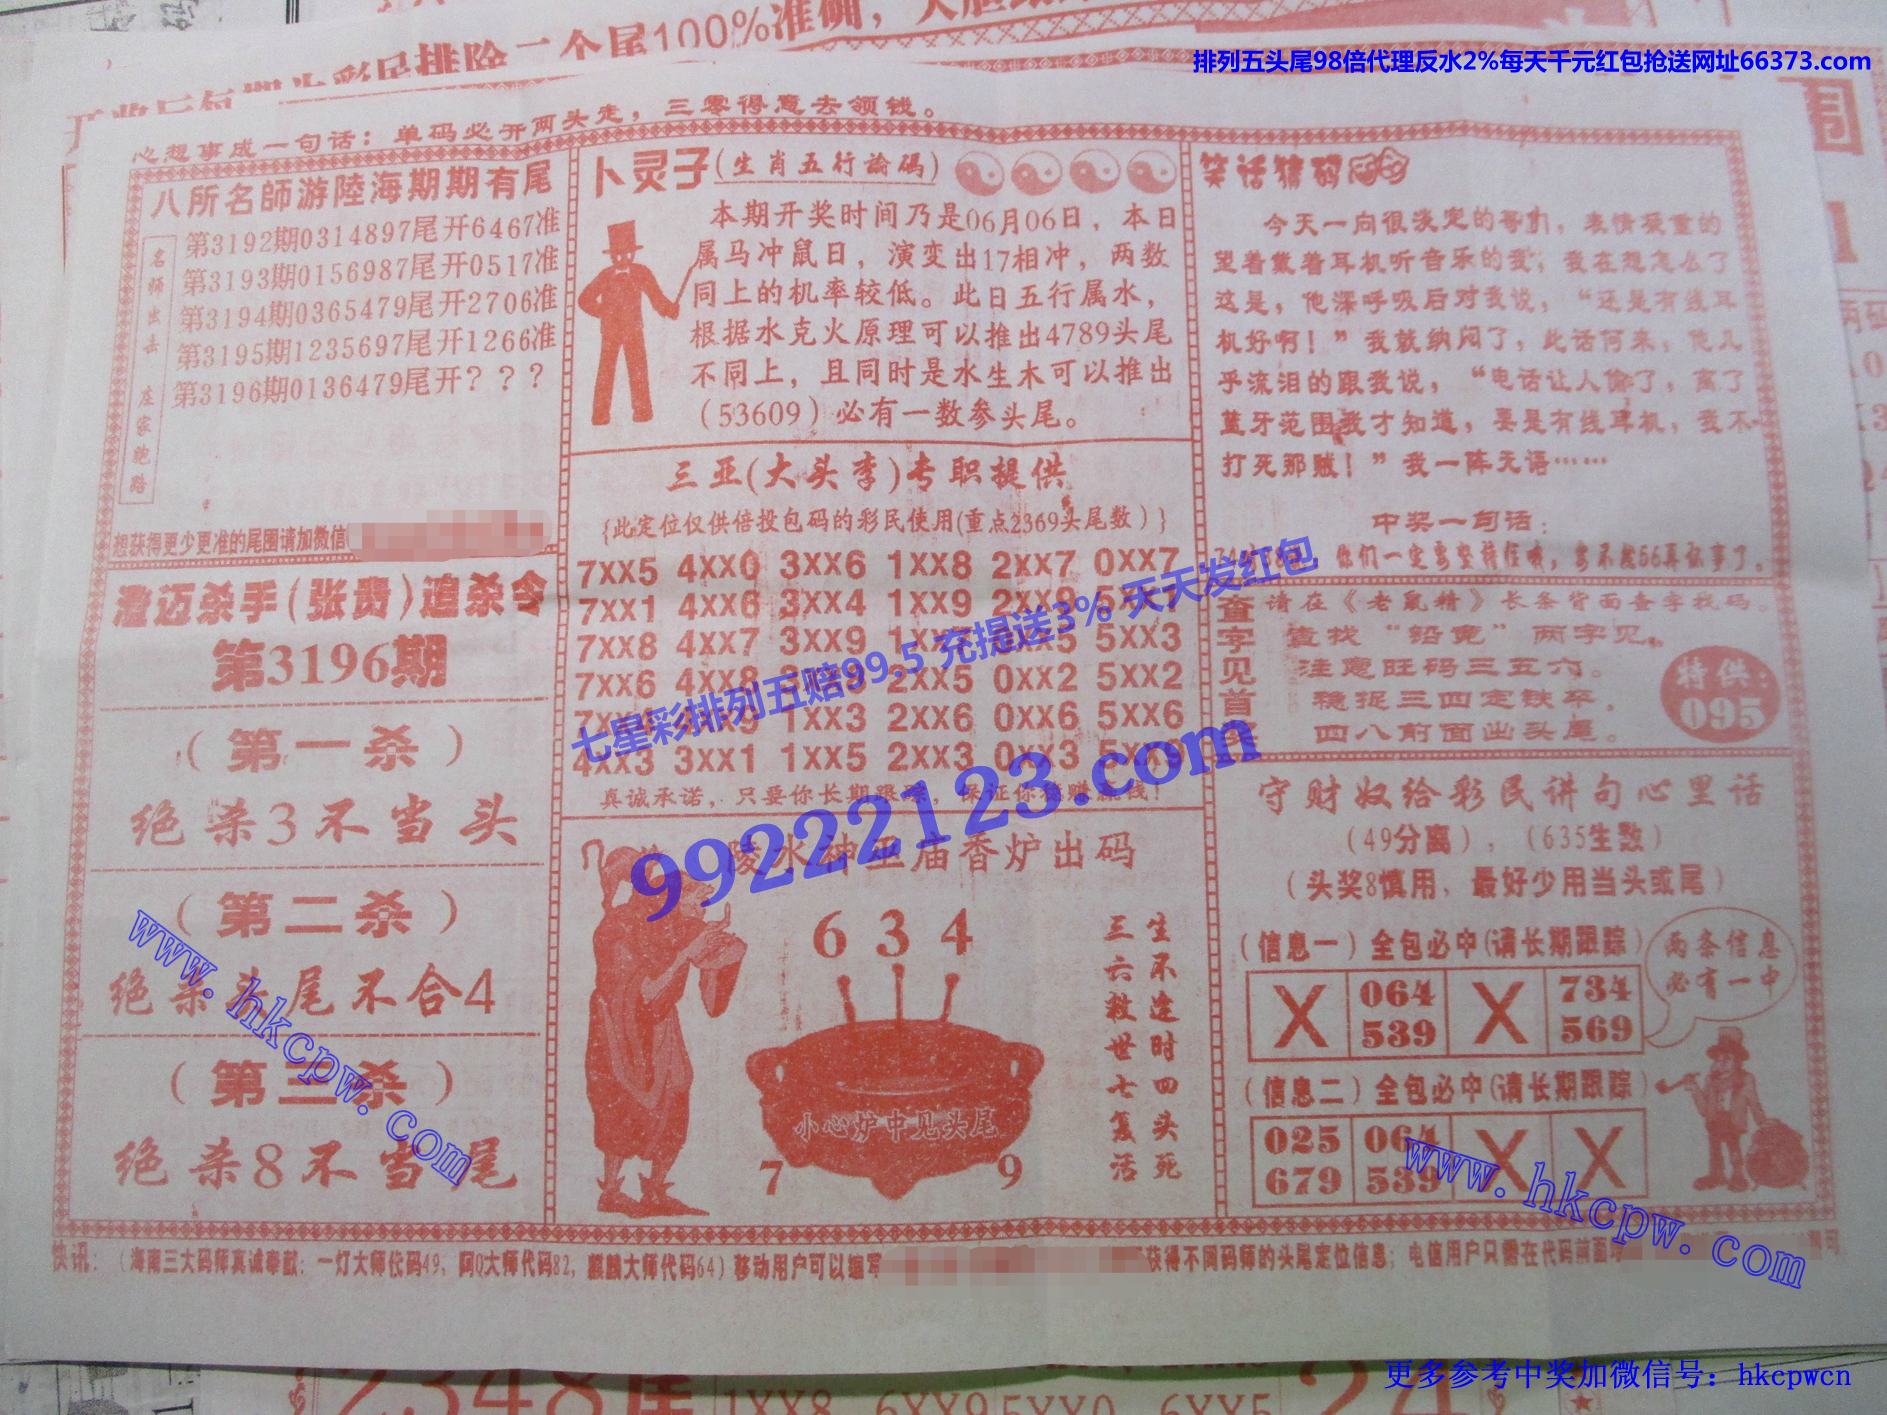 排列五头尾98倍代理反水2%每天千元红包抢送网址66373.com
心想事成一句话：单码必开两头走，三零得意去领钱。
八所名師游陸海期期有尾
名师出击 庄家跑路
第3192期0314897尾开6467准
第3193期0156987尾开0517准
第3194期0365479尾开2706准
第3195期1235697尾开1266准
第3196期0136479尾开？？？
想获得更少更准的尾围请加微信
澄迈杀手(张贵)追杀令
第3196期
（第一杀）
绝杀3不当头
（第二杀）
绝杀头尾不合4
（第三杀）
绝杀8不当尾
卜灵子(生肖五行論碼)
本期开奖时间乃是06月06日，本日
属马冲鼠日，演变出17相冲，两数
同上的机率较低。此日五行属水，
根据水克火原理可以推出4789头尾
不同上，且同时是水生木可以推出
（53609）必有一数参头尾。
三亚(大头李)专职提供
{此定位仅供倍投包码的彩民使用(重点2369头尾数）}
7XX5 4XX0 3XX6 1XX8 2XX7 0XX7
7XX1 4XX6 3XX4 1XX9 2XX9
7XX8 4XX7 3XX9 5XX3
7XX6 4XX8 2XX5 0XX2 5XX2
1XX3 2XX6 0XX6 5XX6
4XX3 3XX1 1XX5 2XX3 0XX3 5XX9
真诚承诺，只要你长期跟踪，保证你稳赚赢钱！
七星彩排列五赔99.5 充提送3% 天天发红包
99222123.com
陵水神巫庙香炉出码
634
小心炉中见头尾
7 9
生不逢时四头死
三六救世七复活
笑话猜码
今天一向很淡定的哥们，表情凝重的
望着戴着耳机听音乐的我，我在想怎么了
这是，他深呼吸后对我说，“还是有线耳
机好啊！”我就纳闷了，此话何来，他几
乎流泪的跟我说，“电话让人偷了，离了
蓝牙范围我才知道，要是有线耳机，我不
打死那贼！”我一阵无语……
中奖一句话：
你们一定要坚持住哦，要不然66再说事了。
查字见首
请在《老鼠精》长条背面查字找码。
查找“铅兔”两字见。
注意旺码三五六。
稳捉三四定铁卒，
四八前面出头尾。
特供：
095
守财奴给彩民讲句心里话
（49分离），（635生数）
（头奖8慎用，最好少用当头或尾）
（信息一）全包必中(请长期跟踪)
X 064 539 X 734 569
两条信息
必有一中
（信息二）全包必中(请长期跟踪)
025 679 064 539 X X
快讯：（海南三大码师真诚奉献：一灯大师代码49，阿Q大师代码82，麒麟大师代码64）移动用户可以编写
获得不同码师的头尾定位信息；电信用户只需在代码前面
www.hkcpw.com
www.hkcpw.com
更多参考中奖加微信号：hkcpwcn